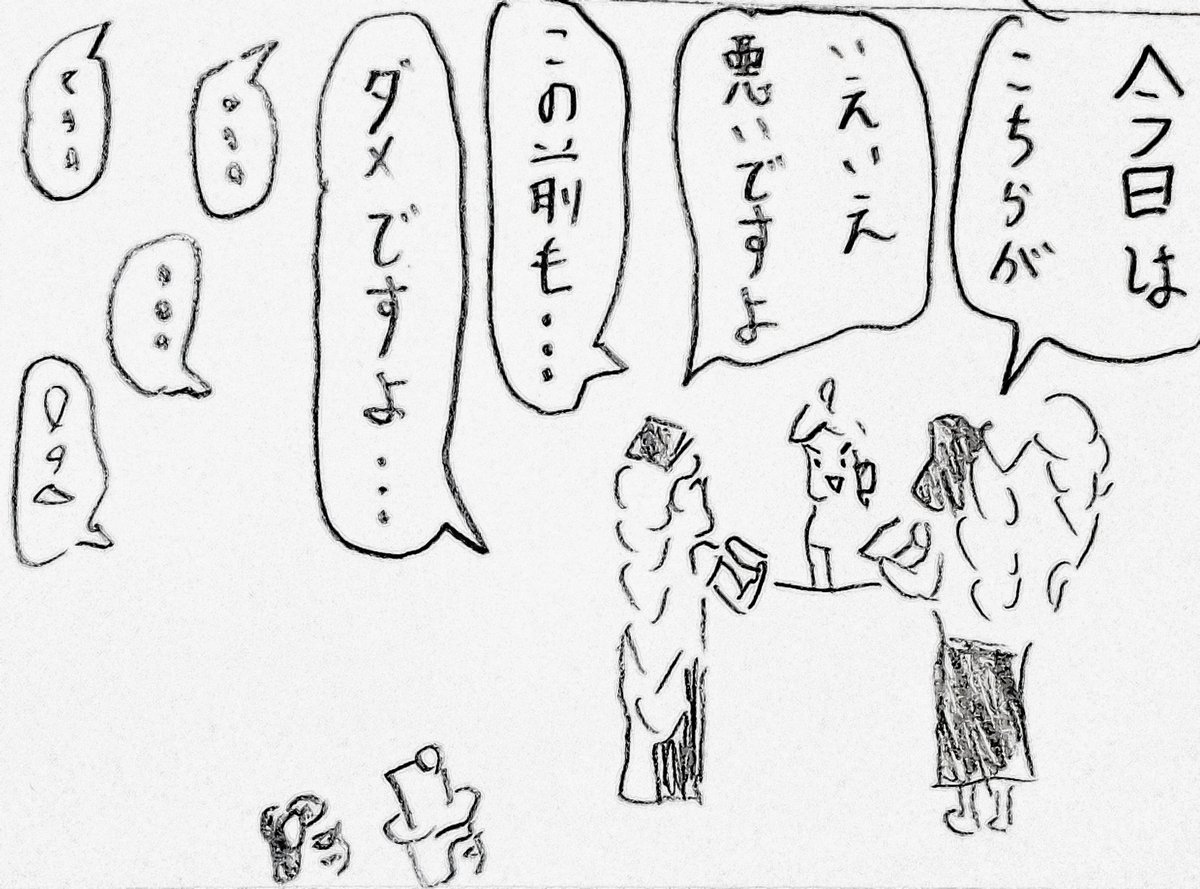 今日は
こちらが
いえいえ
悪いですよ
この前も・・・
ダメですよ・・・
・・・
・・・
・・・
・・・